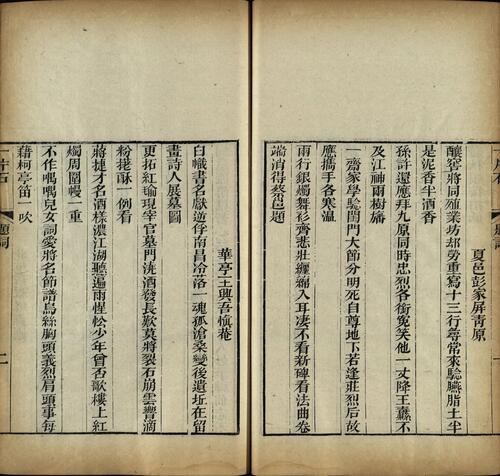 夏邑彭家屏青原
釀窰將同殖業坊却勞重寫十三行尋常來騐臙脂土半
是泥香半酒香
孫許還應拜九原同時忠烈各銜冤笑他一丈降王纛不
及江神雨樹旛
一齋家學騐閨門大節分明死自尊地下若逢莊烈后故
應攜手各寒温
兩行銀燭舞衫齊悲壯纏綿入耳凄不看新碑看法曲卷
端消得蔡邕題
華亭王興吾愼菴
白幟書名獻逆俘南昌冷落一魂孤滄桑變後遺址在留
畫詩人展墓圖
更拓紅瑜現宰官墓門澆酒發長歎莫將裂石崩雲響滴
粉搓酥一例看
蔣捷才名酒樣濃江湖聽遍雨惺忪少年曾否歌樓上紅
燭周圍幔一重
不作喁喁兒女詞愛將名節譜烏絲胸頭義烈肩頭事每
藉柯亭笛一吹
一片石 題詞 二